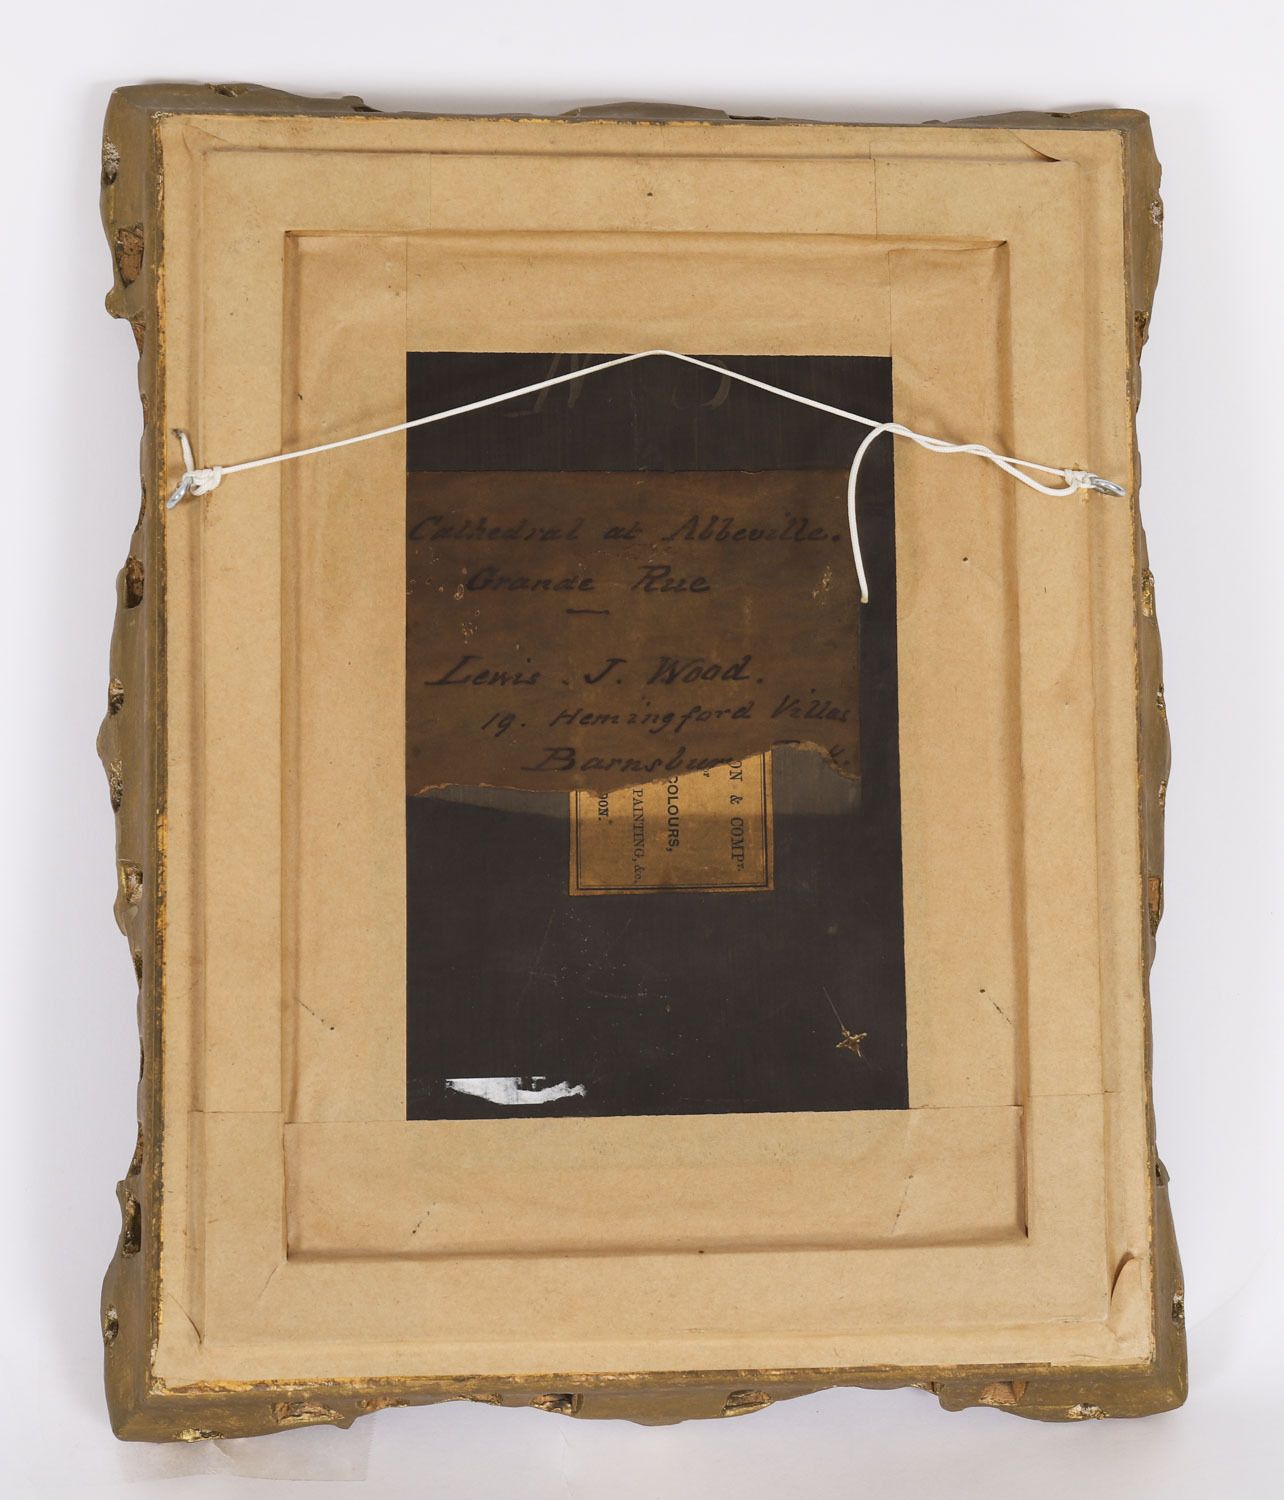 Nº 5
Cathedral at Abbeville.
Grande Rue
Lewis. J. Wood.
19. Hemingford Villas
Barnsbury
ON & COMPY.
COLOURS,
PAINTING, &c.
DON.